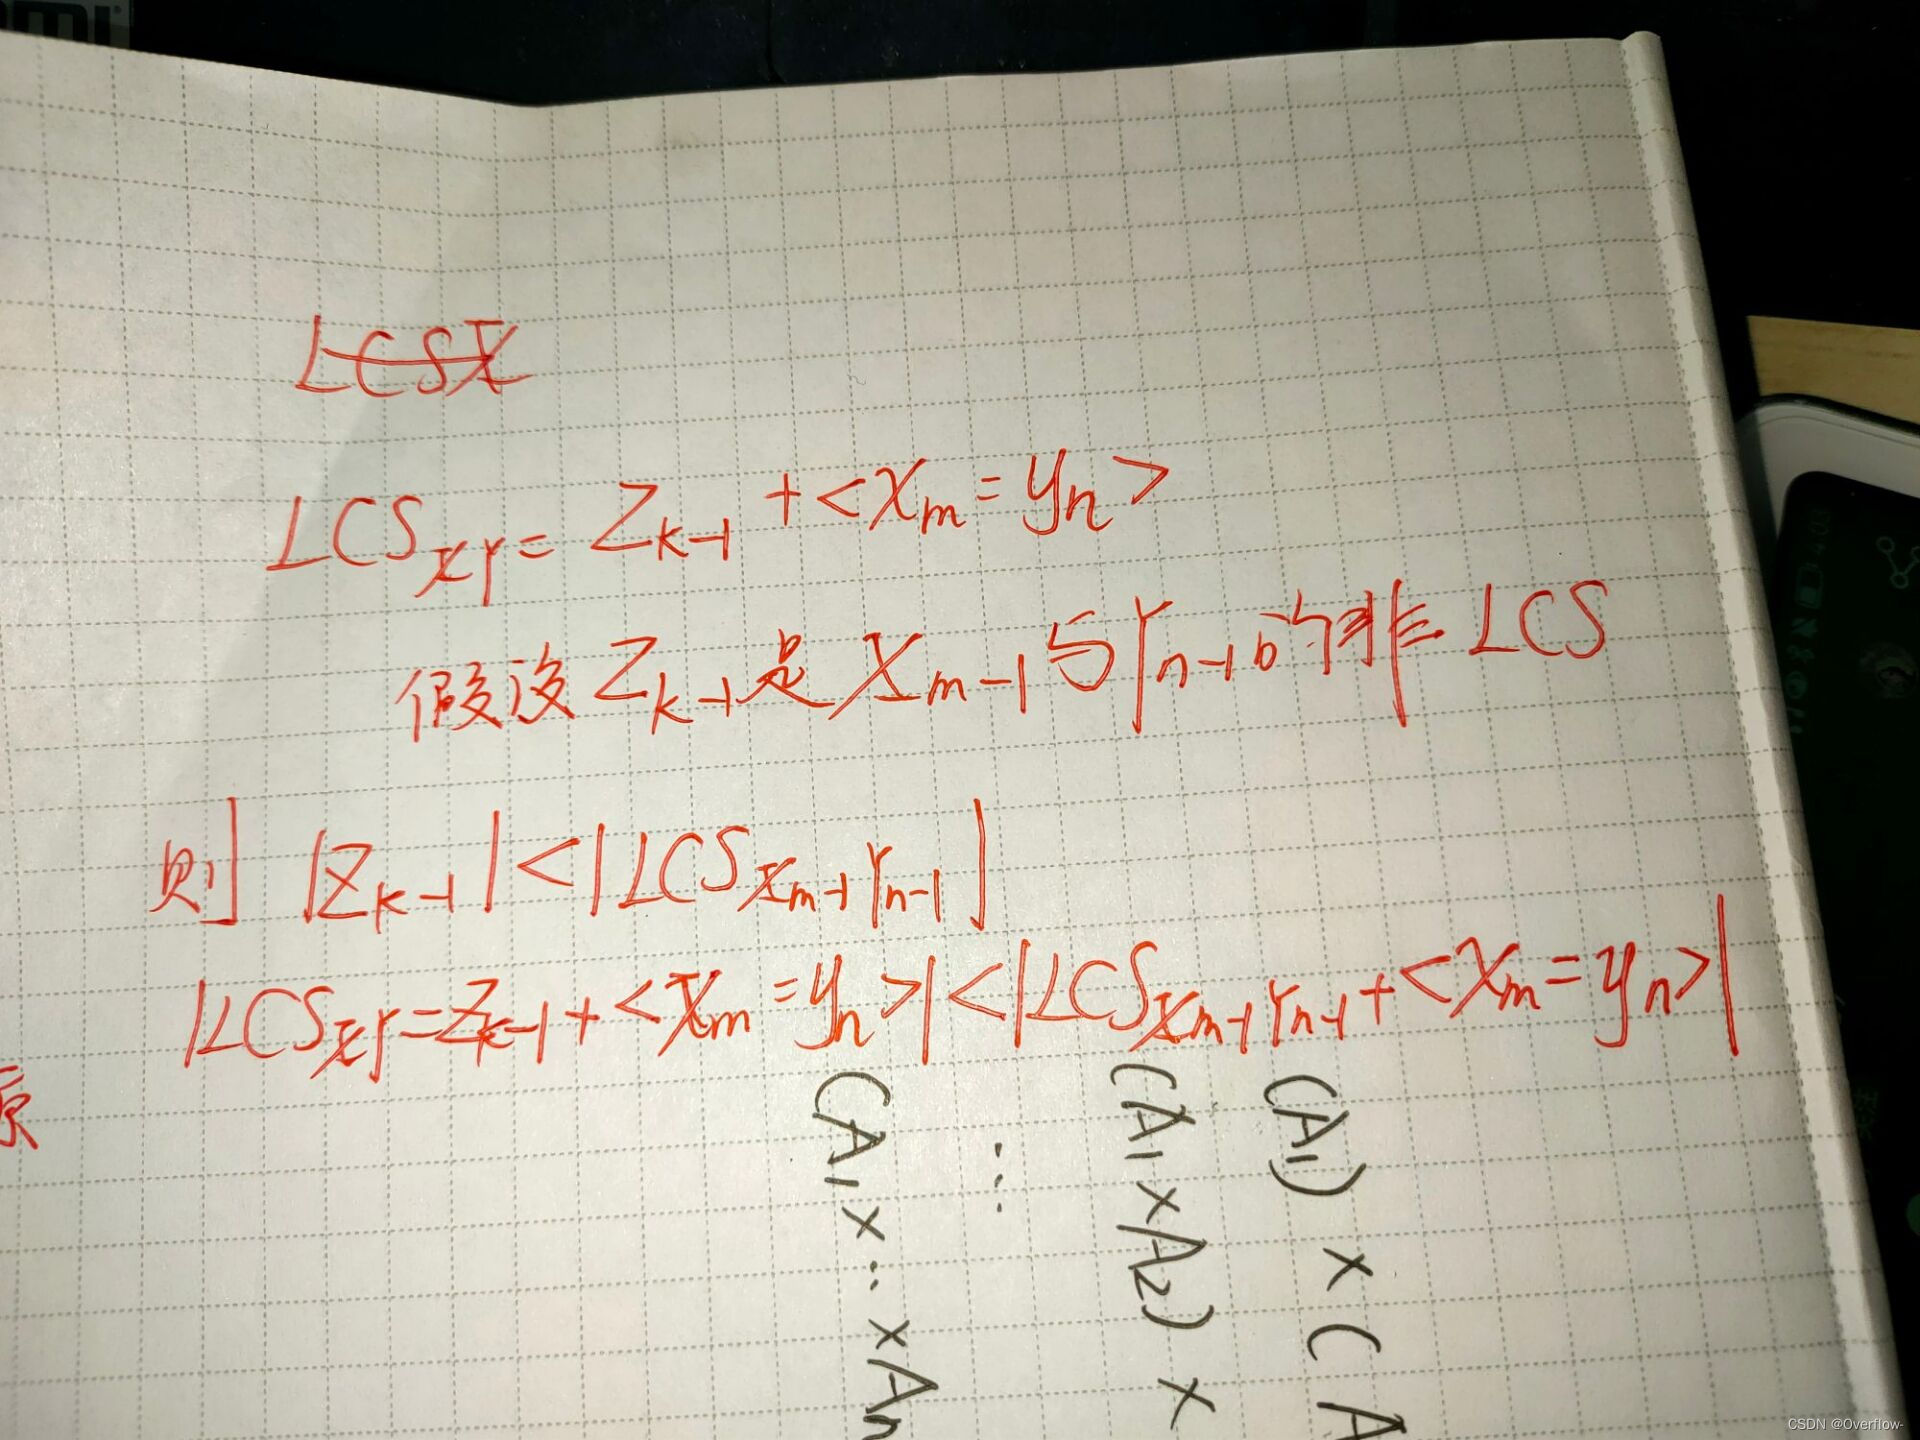 LCSX
LCS_XY = Z_{k-1} + <x_m = y_n>
假设 Z_{k-1} 是 X_{m-1} 与 Y_{n-1} 的非 LCS
则 |Z_{k-1}| < |LCS_{X_{m-1} Y_{n-1}}|
|LCS_XY = Z_{k-1} + <x_m = y_n>| < |LCS_{X_{m-1} Y_{n-1}} + <x_m = y_n>|
原
(A_1) × (A
(A_1 × A_2) ×
⋮
(A_1 × … × A_n
CSDN @Overflow-